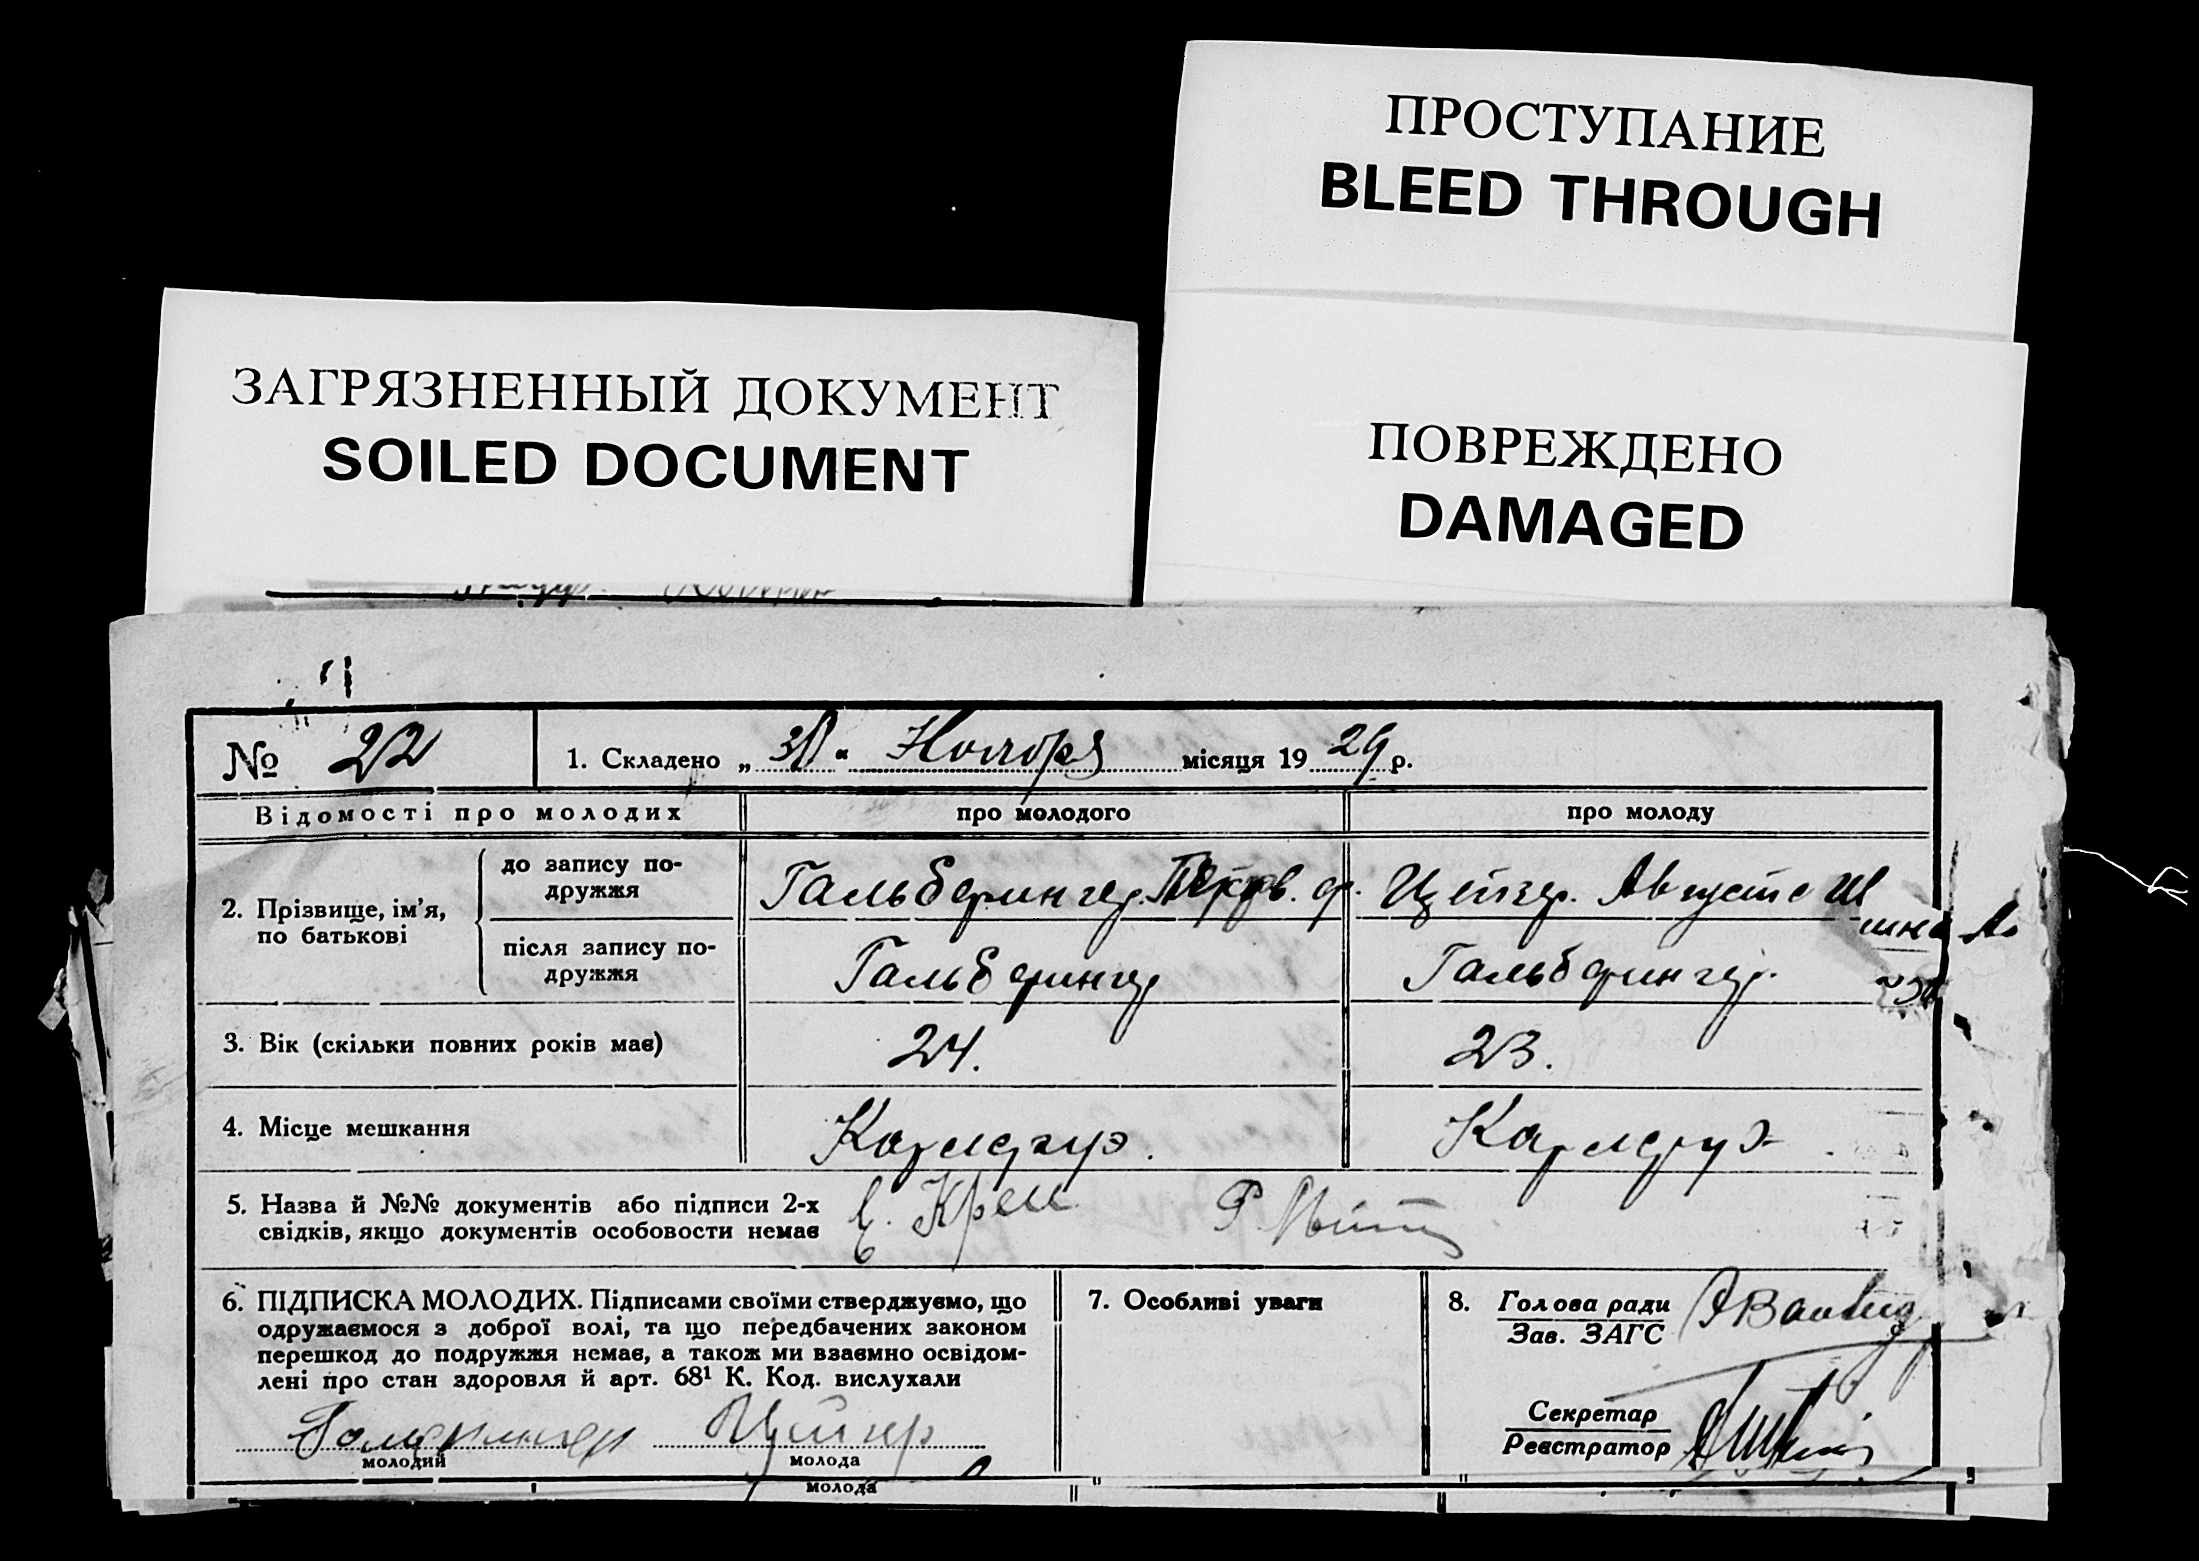 ПРОСТУПАНИЕ
BLEED THROUGH
ЗАГРЯЗНЕННЫЙ ДОКУМЕНТ
SOILED DOCUMENT
ПОВРЕЖДЕНО
DAMAGED
№ 22 1. Складено „ “ Ноября місяця 1929 р.
Відомості про молодих про молодого про молоду
2. Прізвище, ім'я, по батькові
до запису подружжя Гальберингер. Цейзер. Августе
після запису подружжя Гальберингер Гальберингер.
3. Вік (скільки повних років має) 24. 23.
4. Місце мешкання Карлсруэ. Карлсруэ
5. Назва й №№ документів або підписи 2-х
свідків, якщо документів особовости немає
6. ПІДПИСКА МОЛОДИХ. Підписами своїми стверджуємо, що
одружаємося з доброї волі, та що передбачених законом
перешкод до подружжя немає, а також ми взаємно освідом-
лені про стан здоровля й арт. 68¹ К. Код. вислухали
молодий молода
7. Особливі уваги
8. Голова ради
Зав. ЗАГС
Секретар
Реєстратор
молода